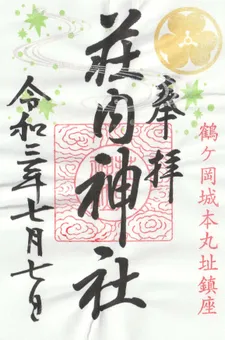 鶴ケ岡城本丸址鎮座
奉拝
荘内神社
令和三年七月七日